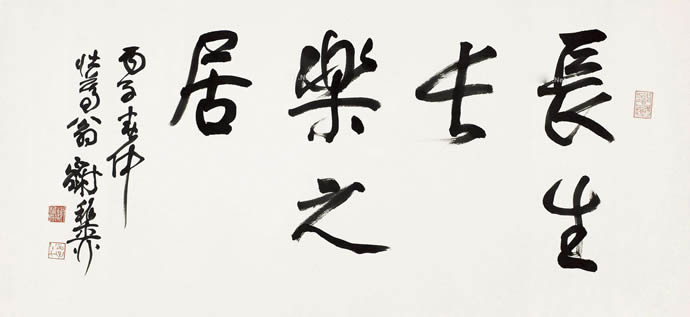 長生
長
樂之
居
丙子春仲
壯暮翁謝稚柳